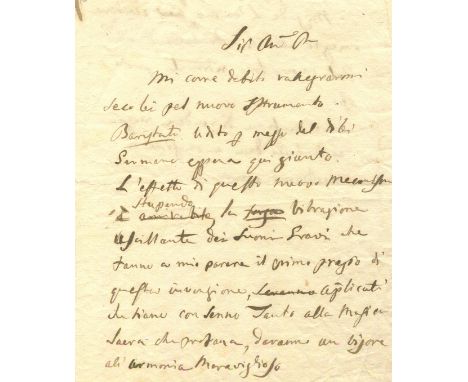 Sig. An.
Mi corre debito rallegrarmi
seco lei pel nuovo Istrumento
Baristata udito p mezzo del di lei
Germano appena qui giunto.
L'effetto di questo nuovo
Stupendo
è la forza vibrazione
oscillante dei Suoni Gravi che
fanno a mio parere il primo pregio di
questa invenzione, saranno applicati
che siano con senno Tanto alla Musica
Sacra che profana, daranno un vigore
all'armonia Maraviglioso